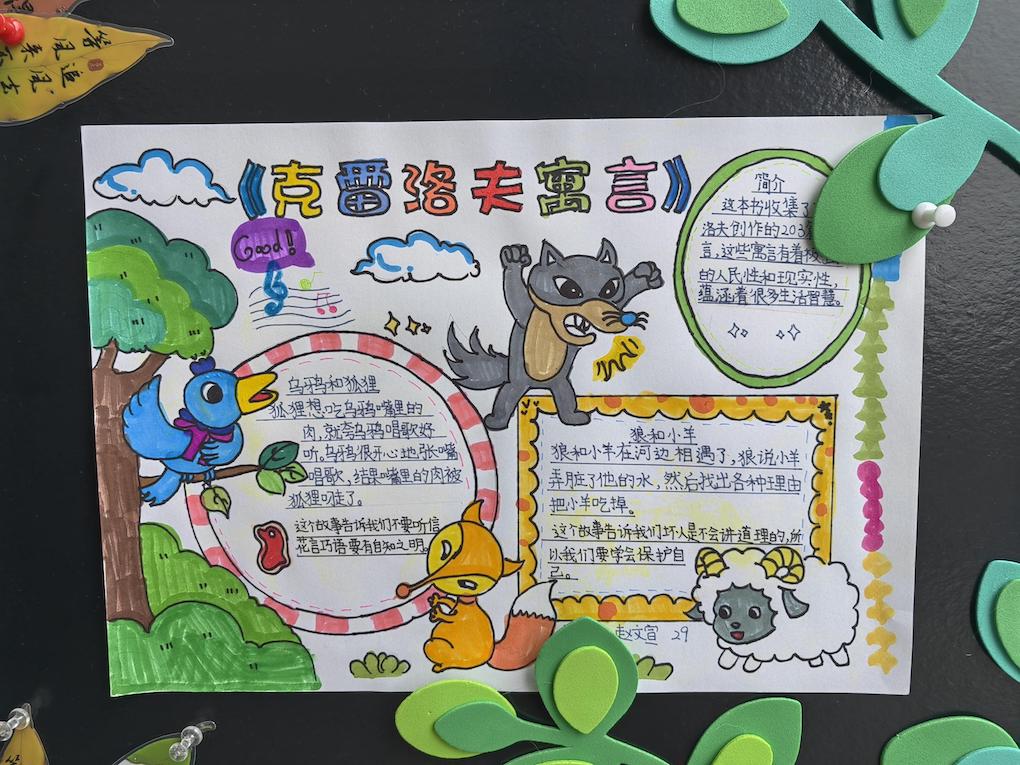 《克雷洛夫寓言》
Good!
简介
这本书收集了
洛夫创作的203
言,这些寓言有着
的人民性和现实性,
蕴涵着很多生活智慧。
乌鸦和狐狸
狐狸想吃乌鸦嘴里的
肉,就夸乌鸦唱歌好
听。乌鸦很开心地张嘴
唱歌,结果嘴里的肉被
狐狸叼走了。
这个故事告诉我们不要听信
花言巧语要有自知之明。
狼和小羊
狼和小羊在河边相遇了,狼说小羊
弄脏了他的水,然后找出各种理由
把小羊吃掉。
这个故事告诉我们坏人是不会讲道理的,所
以我们要学会保护自
己。
赵文宣 29